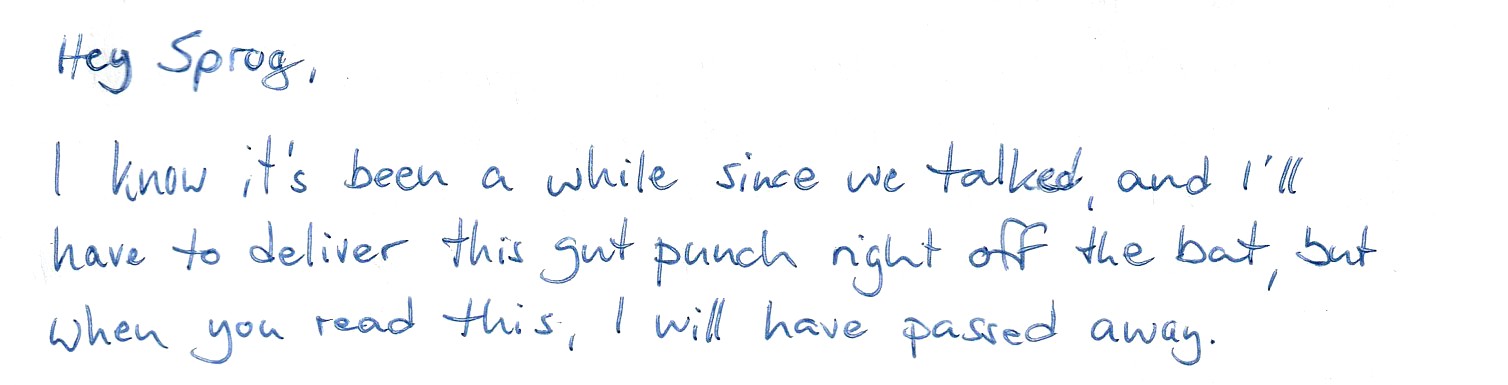 Hey Sprog,
I know it's been a while since we talked, and I'll
have to deliver this gut punch right off the bat, but
when you read this, I will have passed away.